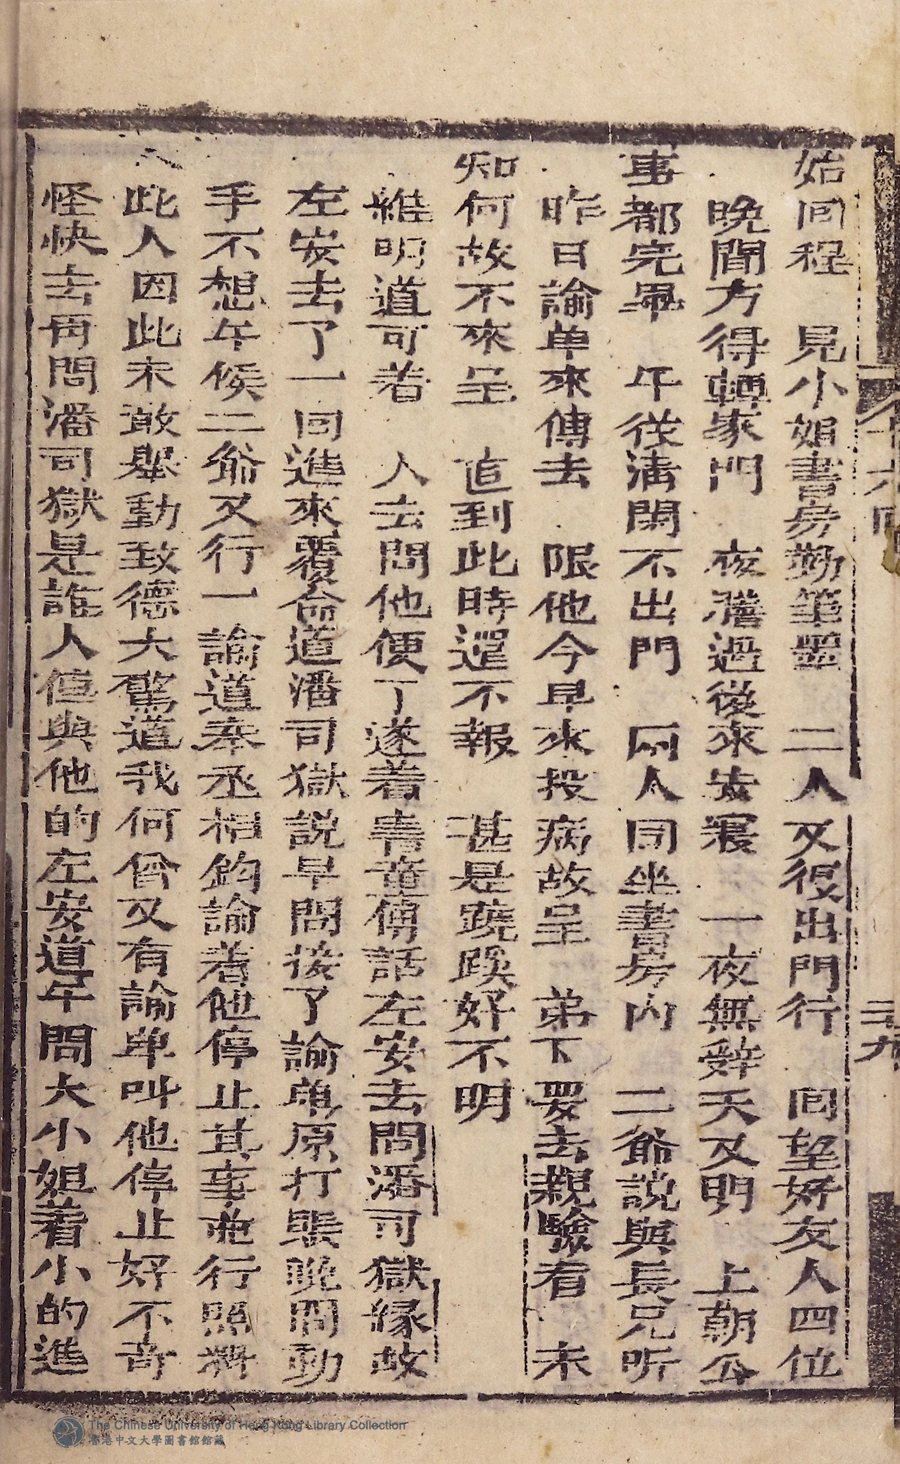 始回程　見小姐書房勤筆墨　二人又復出門行　回望好友人四位
晚間方得轉家門　夜膳過後來安寢　一夜無辭天又明　上朝公
事都完畢　午後清閑不出門　兩人同坐書房內　二爺說與長兄听
昨日諭单來傳去　限他今早來投病故呈　弟下要去親驗看　未
知何故不來呈　直到此時還不報　甚是蹺蹊好不明
維明道可着　人去問他便了遂着書童傳話左安去問潘司獄緣故
左安去了一回進來覆命道潘司獄說早間接了諭单原打賬晚間動
手不想午候二爺又行一諭道奉丞相鈞諭着他停止其事而行照舊
此人因此未敢舉動致德大驚道我何曾又有諭单叫他停止好不奇
怪快去再問潘司獄是誰人值與他的左安道午間大小姐着小的進
十六回
三九
The Chinese University of Hong Kong Library Collection
香港中文大學圖書館館藏